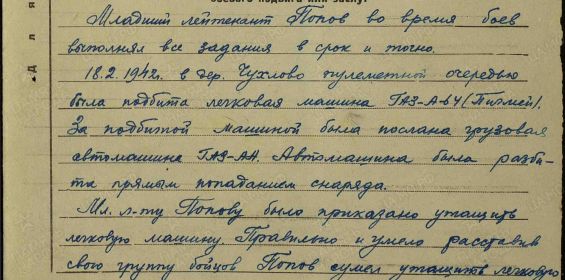 боевого подвига или заслуг
Для
Младший лейтенант Попов во время боев
выполнял все задания в срок и точно.
18.2.1942г. в дер. Чухлово пулеметной очередью
была подбита легковая машина ГАЗ-А
За подбитой машиной была послана грузовая
автомашина ГАЗ-АА. Автомашина была разби-
та прямым попаданием снаряда.
Мл. л-ту Попову было приказано утащить
легковую машину. Правильно и умело расставив
свою группу бойцов Попов сумел утащить легковую